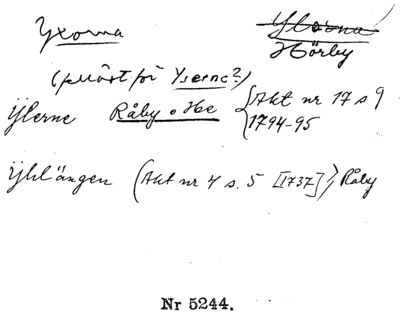 Yxorna
Hörby
(fellört för Yserne?)
Ylerne Råby o He Akt nr 17 s 9
1794-95
Yhlängen (Akt nr 4 s. 5 [1737]), Råby
Nr 5244.